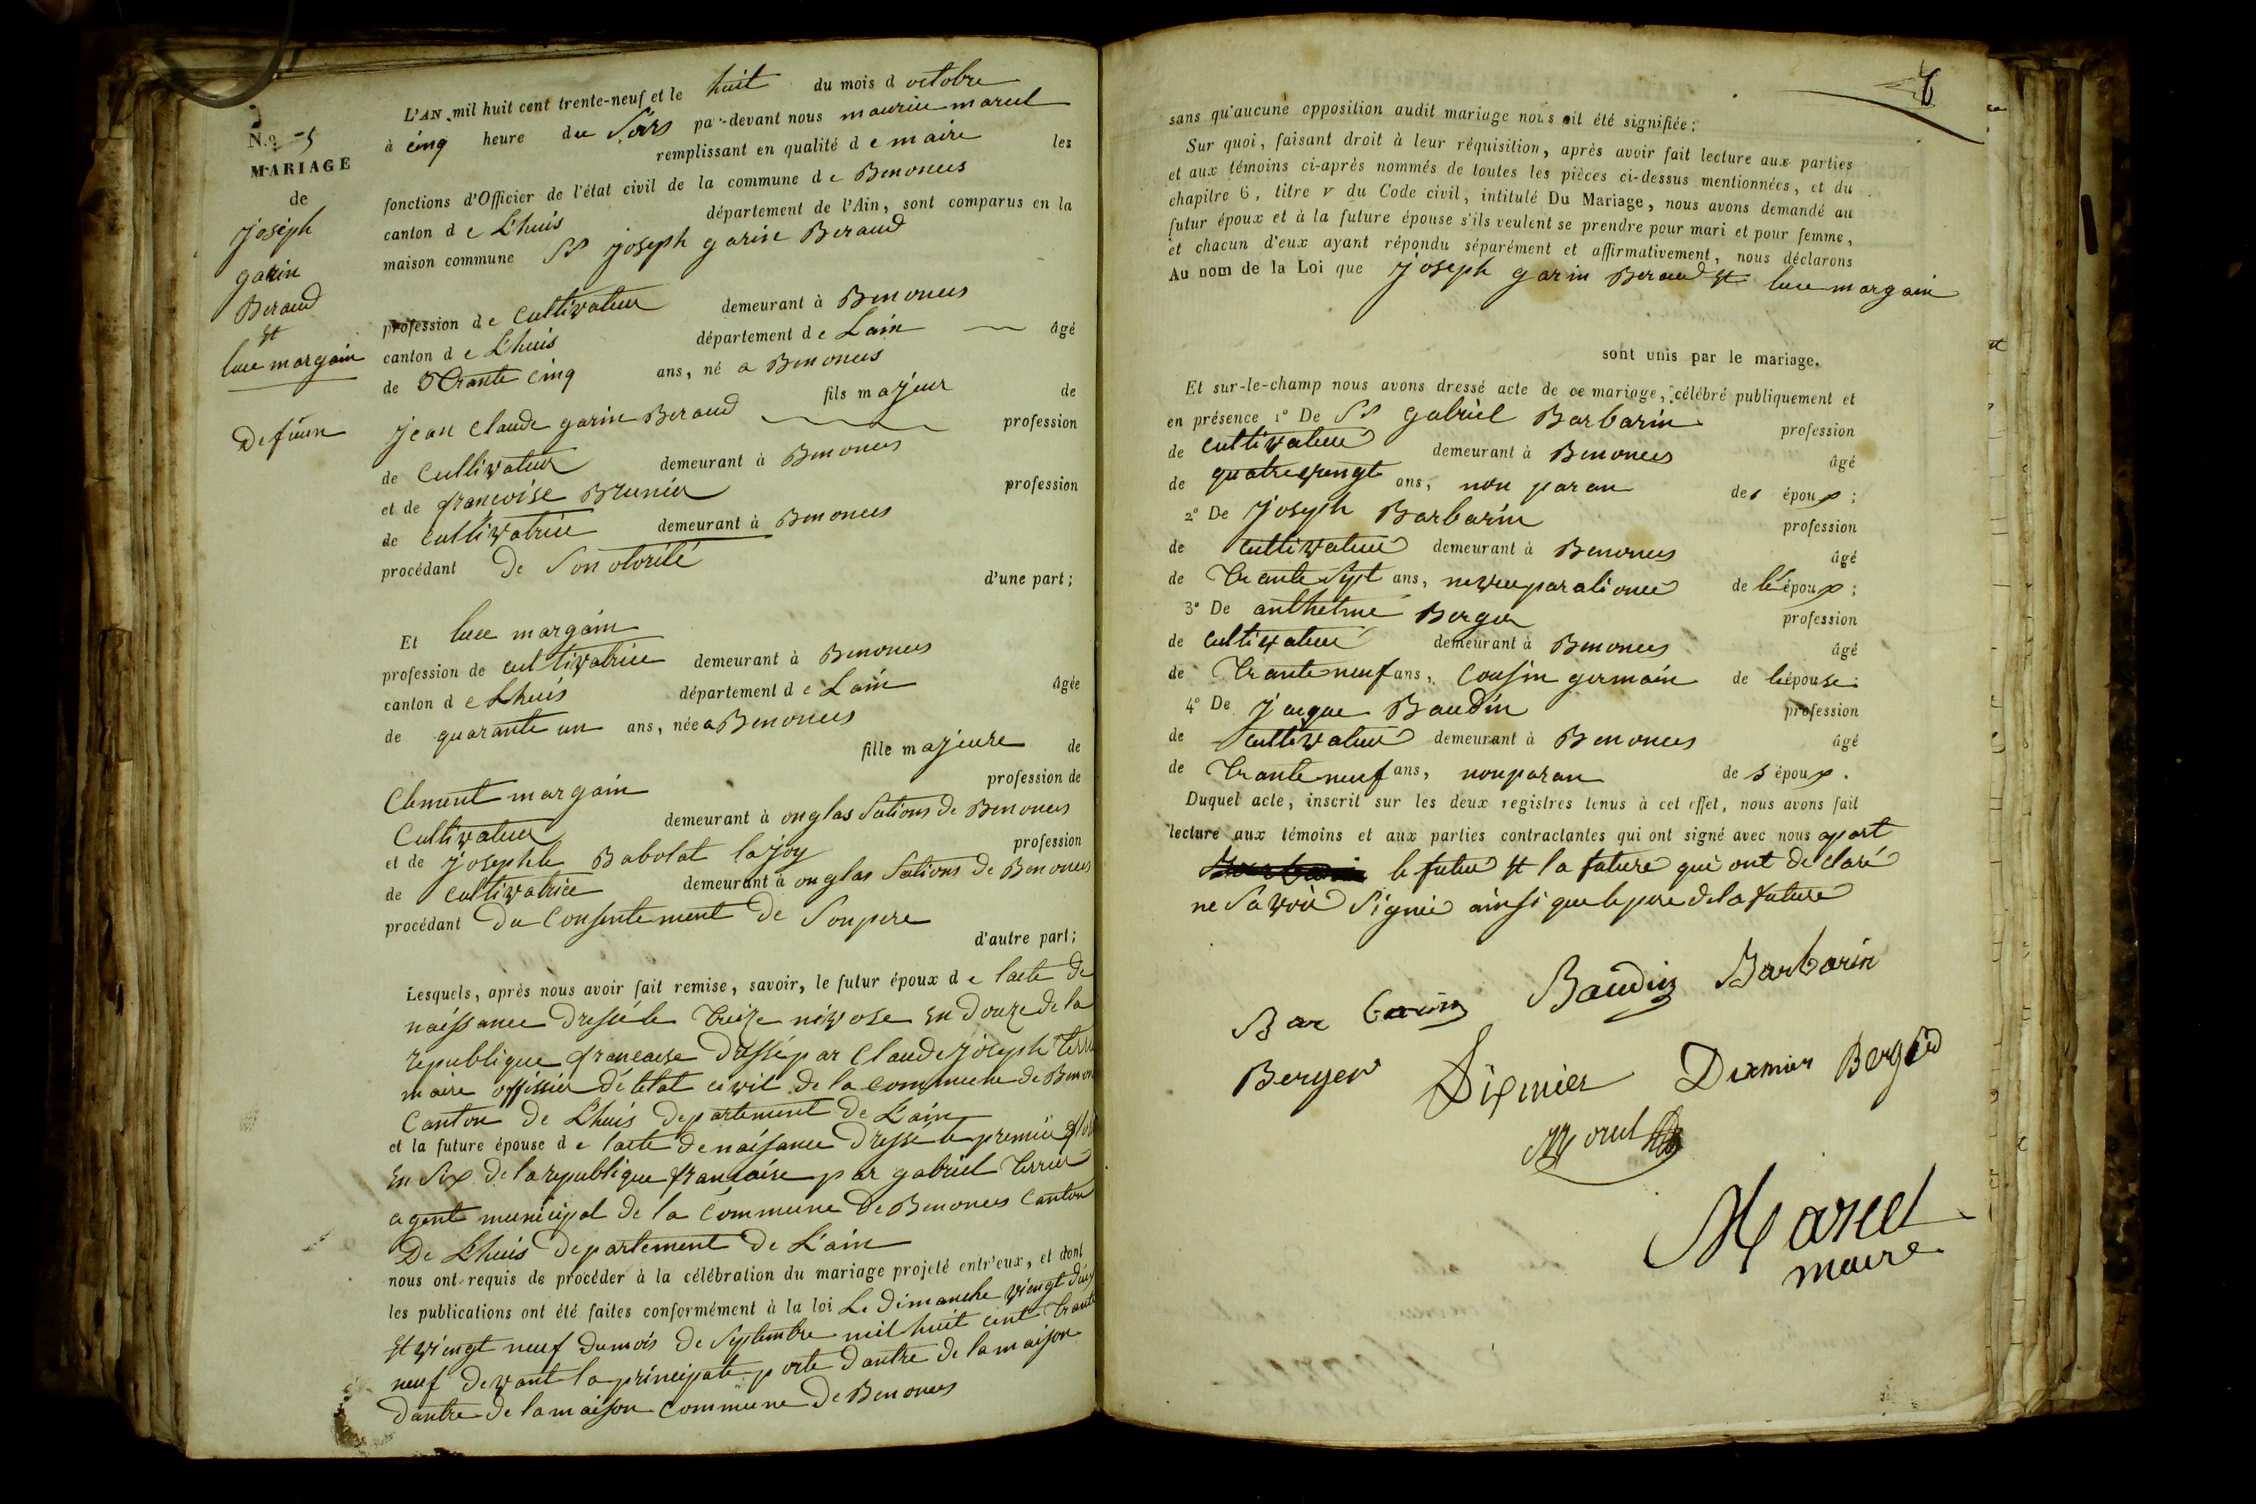 N.o 5
MARIAGE
de
joseph
garin
Beraud
et
luce margain
Defiun
L'AN mil huit cent trente-neuf et le huit du mois d octobre
à cinq heure du Soirs par-devant nous maurice marcel
remplissant en qualité d e maire les
fonctions d'Officier de l'état civil de la commune d e Benonces
canton d e Lhuis département de l'Ain, sont comparus en la
maison commune Sr joseph garin Beraud
profession d e Cultivateur demeurant à Benonces
canton d e Lhuis département d e Lain âgé
de Trante cinq ans, né a Benonces
fils majeur de
jean Claude garin Beraud profession
de Cultivateur demeurant à Benonces
et de francoise Brunier profession
de Cultivatrice demeurant à Benonces
procédant de Son otorité
d'une part;
Et luce margain
profession de cultivatrice demeurant à Benonces
canton d e Lhuis département d e Lain âgée
de quarante un ans, née a Benonces
fille majeure de
Clement margain profession de
Cultivateur demeurant à onglas Sations de Benonces
et de josephte Babolat lajoy profession
de cultivatrice demeurant à onglas Sations de Benonces
procédant du Consentement de Son pere
d'autre part;
Lesquels, après nous avoir fait remise, savoir, le futur époux d e lacte de
naissance dressé le treize nivose en douze de la
republique francaise dressé par Claude joseph
maire offissier détat civil de la commune de
Canton de Lhuis departement de Lain
et la future épouse d e lacte de naissance dresse le premier
en Six de la republique francaise par gabriel Terrier
agent municipal de la Commune de Benonces Canton
De Lhuis departement de Lain
nous ont requis de procéder à la célébration du mariage projeté entr'eux, et dont
les publications ont été faites conformément à la loi Le dimanche viengt
et viengt neuf du mois de septembre mil huit cent trante
neuf devant la principale porte dantre de la maison
dantre de la maison commune de Benonces
6
sans qu'aucune opposition audit mariage nous ait été signifiée;
Sur quoi, faisant droit à leur réquisition, après avoir fait lecture aux parties
et aux témoins ci-après nommés de toutes les pièces ci-dessus mentionnées, et du
chapitre 6, titre v du Code civil, intitulé Du Mariage, nous avons demandé au
futur époux et à la future épouse s'ils veulent se prendre pour mari et pour femme,
et chacun d'eux ayant répondu séparément et affirmativement, nous déclarons
Au nom de la Loi que joseph garin Beraud et luce margain
sont unis par le mariage.
Et sur-le-champ nous avons dressé acte de ce mariage, célébré publiquement et
en présence 1º De Sr gabriel Barbarin profession
de cultivateur demeurant à Benonces âgé
de quatre vengt ans, non paran des époux;
2º De joseph Barbarin profession
de cultivateur demeurant à Benonces âgé
de Trante Sept ans, neveu de lépoux;
3º De anthelme Berger profession
de cultivateur demeurant à Benonces âgé
de Trante neuf ans, Cousin germain de lépouse
4º De jacque Baudin profession
de cultivateur demeurant à Benonces âgé
de Trante neuf ans, non paran de s époux.
Duquel acte, inscrit sur les deux registres tenus à cet effet, nous avons fait
lecture aux témoins et aux parties contractantes qui ont signé avec nous apart
le futur et la future qui ont declaré
ne Savoir Signer ainsi que le pere de la future
Barbarin Baudin Barbarin
Berger Dixmier Dixmier Berger
Morel
Marcel
maire